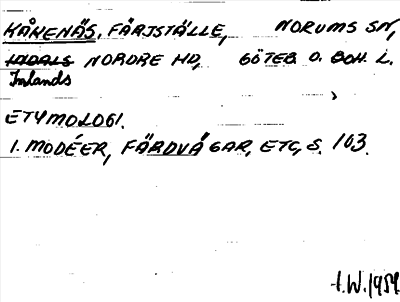 KÅKENÄS, FÄRJSTÄLLE, NORUMS SN,
INDALS NORDRE HD, GÖTEB O. BOH. L.
Inlands
ETYMOLOGI.
I. MODÉER, FÄRDVÄGAR, ETC, S. 103.
I.W.1959